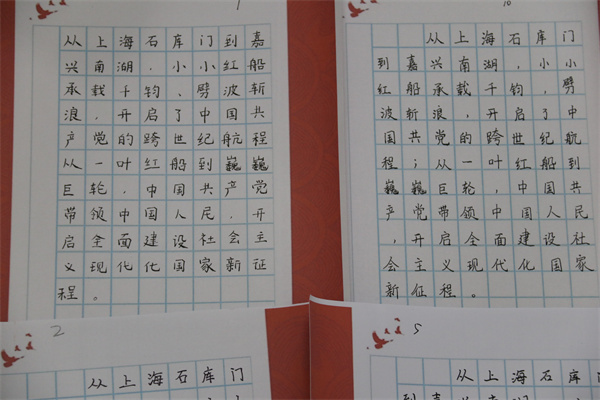 1
从上海石库门到嘉
兴南湖,小小红船
承载千钧、劈波斩
浪,开启了中国共
产党的跨世纪航程
从一叶红船到巍巍
巨轮,中国共产党
带领中国人民,开
启全面建设社会主
义现代化国家新征
程。
10
从上海石库门
到嘉兴南湖,小小
红船承载千钧,劈
波斩浪,开启了中
国共党的跨世纪航
程;从一叶红船到
巍巍巨轮,中国共
产党带领中国人民
,开启全面建设社
会主义现代化国家
新征程。
2
从上海石库门
5
从上海石库门